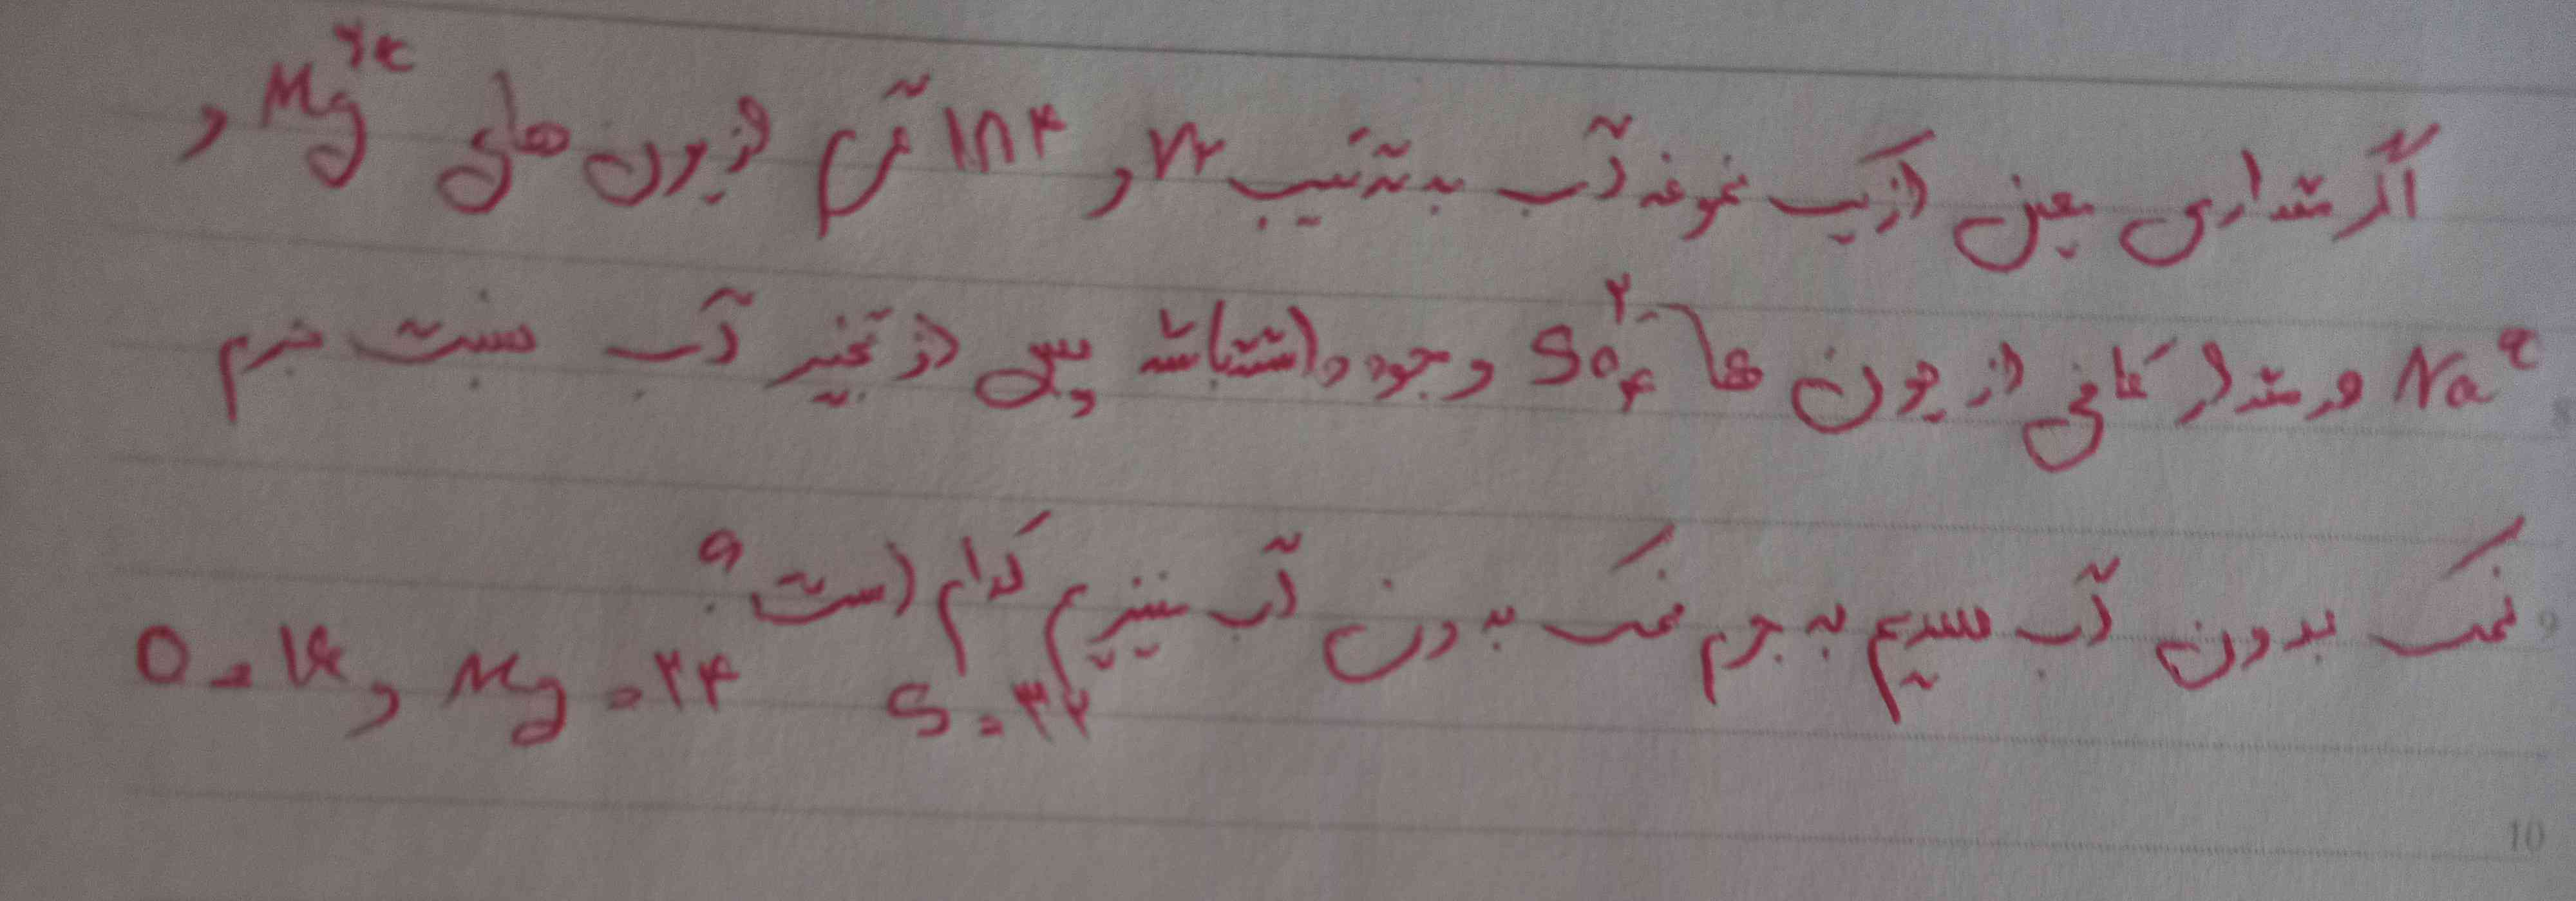 اگر مقداری معین از یک نمونه آب به ترتیب ۷۲ و ۱۸۴ گرم از یون های Mg²⁺ و
Na⁺ و مقدار کافی از یون ها SO₄²⁻ وجود داشته باشد پس از تبخیر آب نسبت جرم
نمک بدون آب سدیم به جرم نمک بدون آب منیزیم کدام است؟
O = ۱۶ و Mg = ۲۴ S = ۳۲
8
9
10